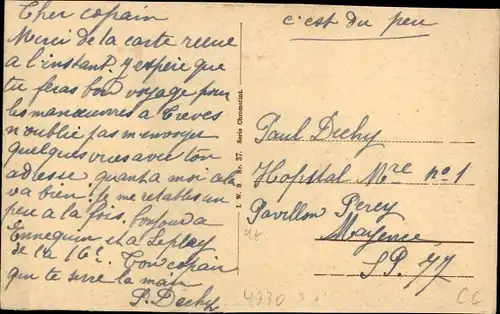 Cher copain
Merci de la carte recue
a l'instant j'espère que
tu feras bon voyage pour
les manœuvres a Treves
n'oublie pas m'envoyer
quelques vues avec ton
adresse quant a moi cela
va bien je me retablis un
peu a la fois. toujours a
Ennequin et a Leplay
de la 16e. Ton copain
qui te serre la main
P. Dechy
c'est du peu
I. W. B Nr. 37. Serie Chromotint.
Paul Dechy
Hopstal Mre no 1
Pavillon Percy
Mayence
SP. 77
4330